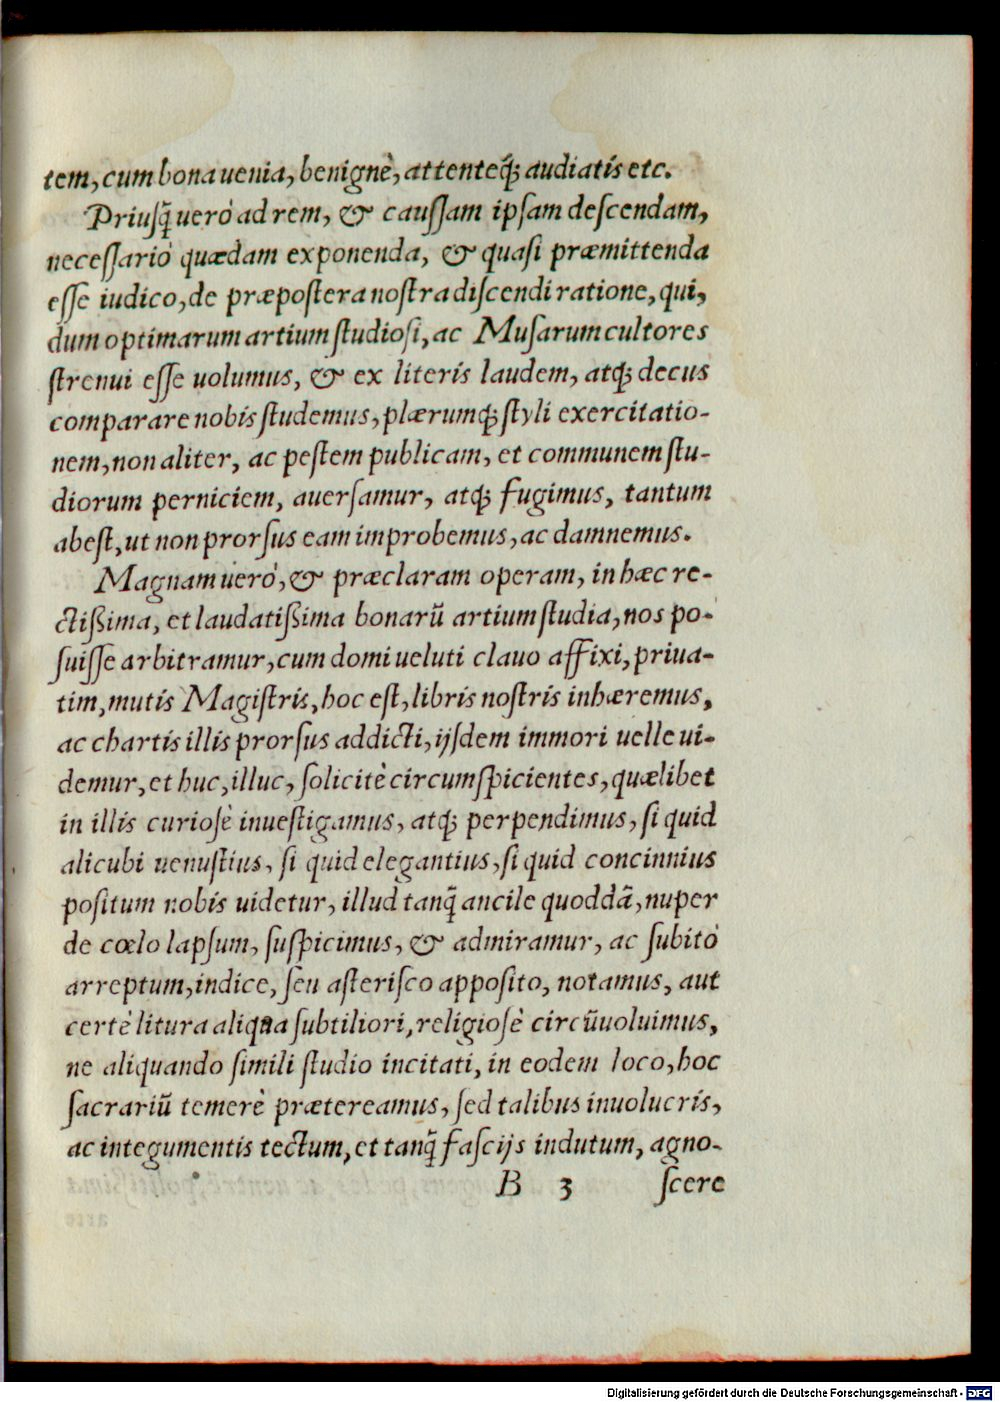 tem, cum bona uenia, benignè, attenteq́; audiatis etc.
Priusq̃ uerò ad rem, & caußam ipsam descendam,
necessariò quædam exponenda, & quasi præmittenda
esse iudico, de præpostera nostra discendi ratione, qui,
dum optimarum artium studiosi, ac Musarum cultores
strenui esse uolumus, & ex literis laudem, atq; decus
comparare nobis studemus, plærumq; styli exercitatio-
nem, non aliter, ac pestem publicam, et communem stu-
diorum perniciem, auersamur, atq; fugimus, tantum
abest, ut non prorsus eam improbemus, ac damnemus.
Magnam uerò, & præclaram operam, in hæc re-
ctißima, et laudatißima bonarũ artium studia, nos po-
suisse arbitramur, cum domi ueluti clauo affixi, priua-
tim, mutis Magistris, hoc est, libris nostris inhæremus,
ac chartis illis prorsus addicti, ijsdem immori uelle ui-
demur, et huc, illuc, solicitè circumspicientes, quælibet
in illis curiosè inuestigamus, atq; perpendimus, si quid
alicubi uenustius, si quid elegantius, si quid concinnius
positum nobis uidetur, illud tanq̃ ancile quoddã, nuper
de cœlo lapsum, suspicimus, & admiramur, ac subitò
arreptum, indice, seu asterisco apposito, notamus, aut
certè litura aliqua subtiliori, religiosè circũuoluimus,
ne aliquando simili studio incitati, in eodem loco, hoc
sacrariũ temerè prætereamus, sed talibus inuolucris,
ac integumentis tectum, et tanq̃ fascijs indutum, agno-
B 3 scere
Digitalisierung gefördert durch die Deutsche Forschungsgemeinschaft - DFG